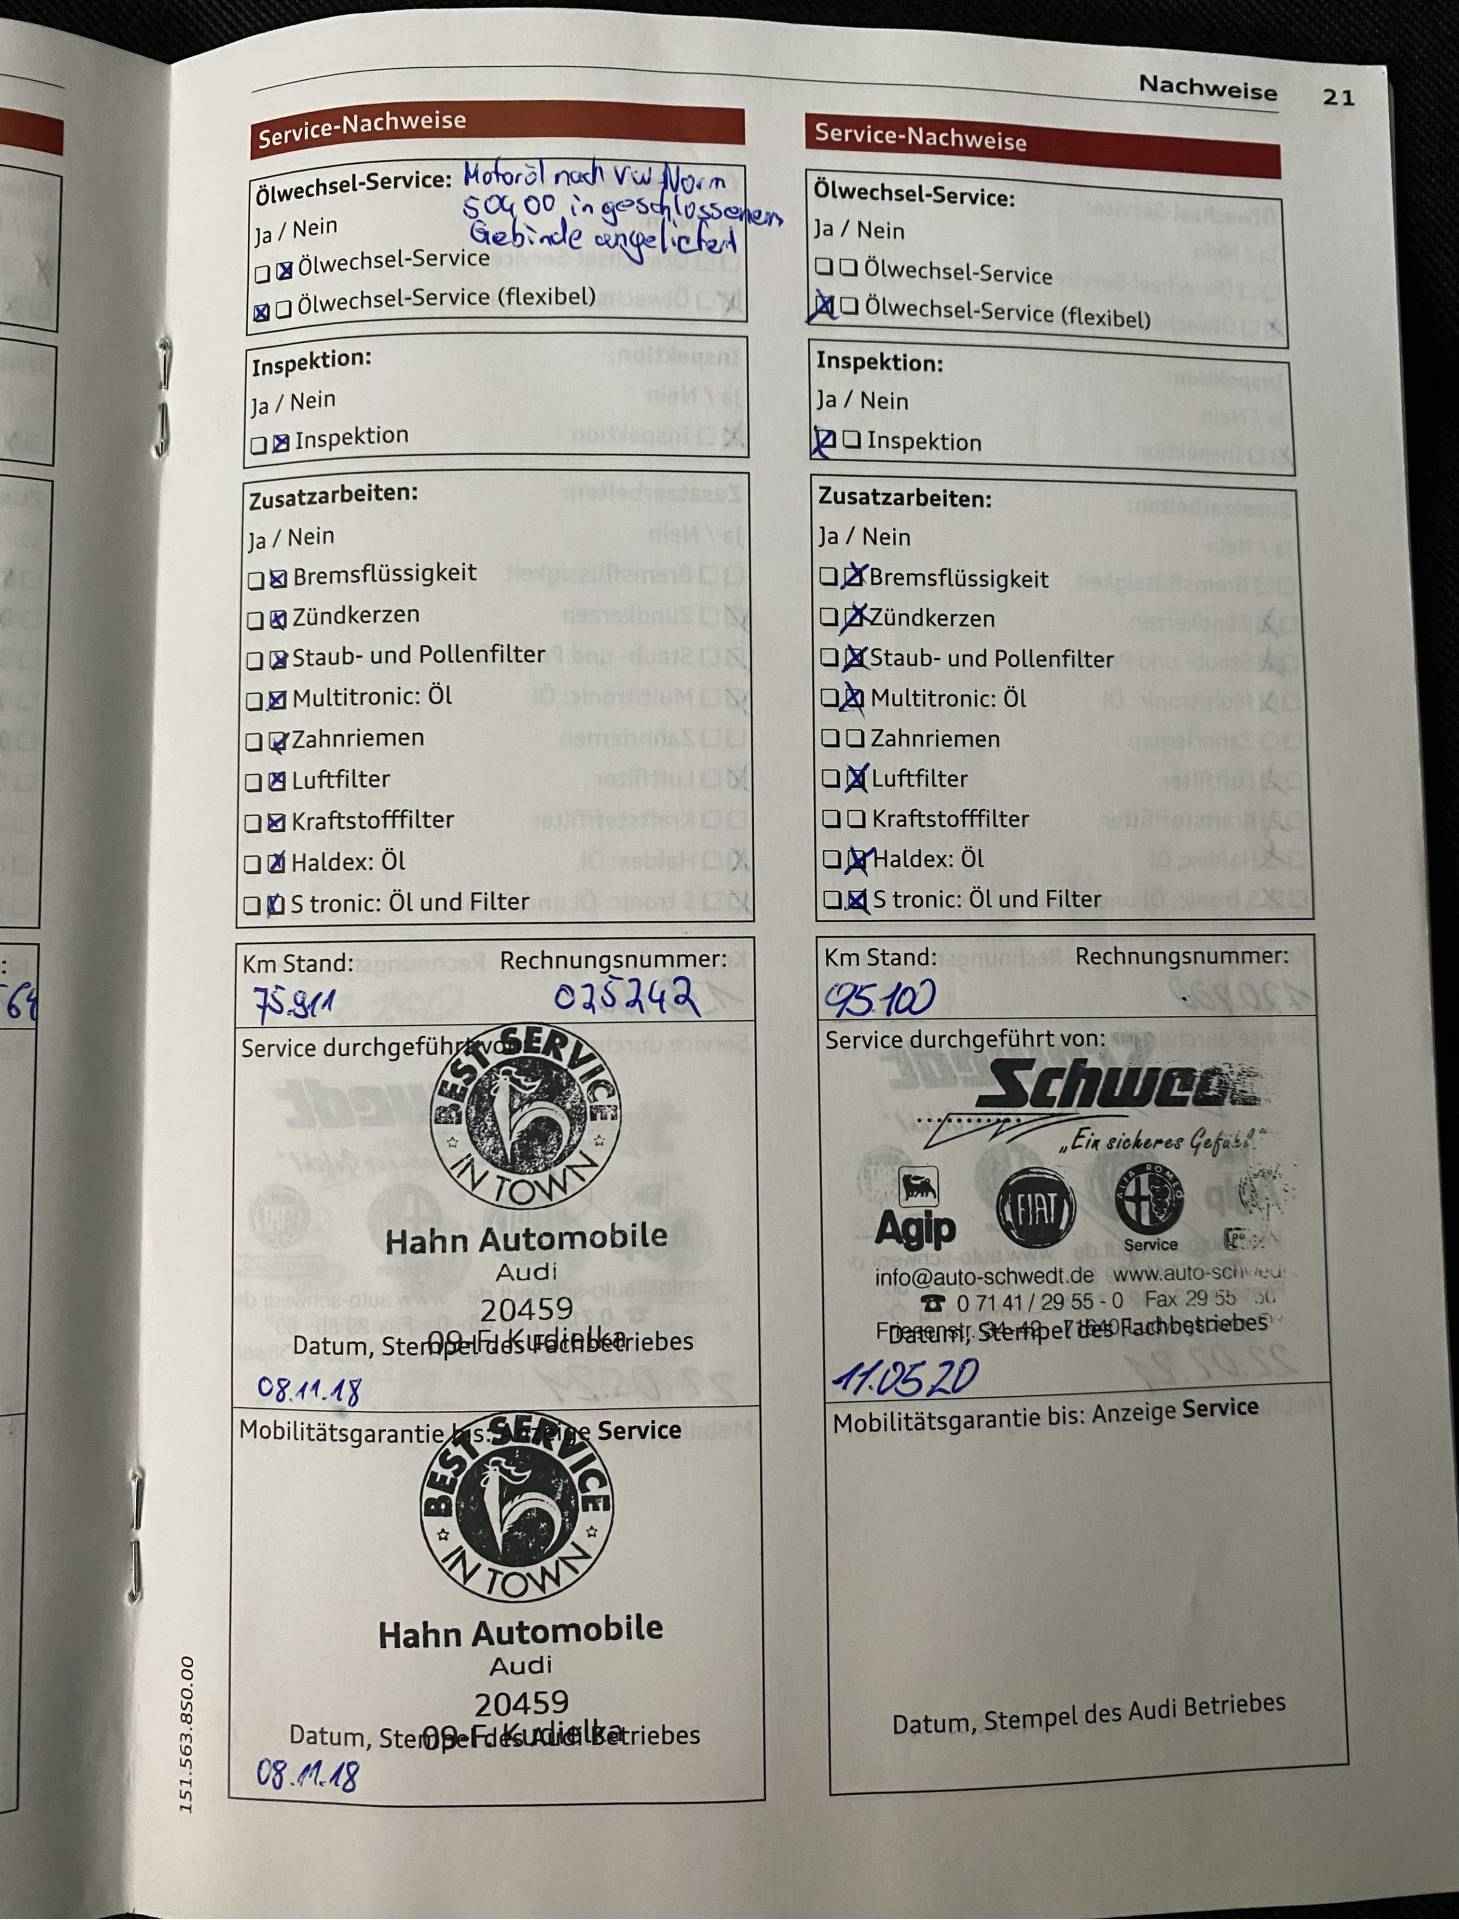 Nachweise 21
Service-Nachweise
Ölwechsel-Service: Motoröl nach VW Norm
50400 in geschlossenem
Gebinde angeliefert
Ja / Nein
Ölwechsel-Service
Ölwechsel-Service (flexibel)
Inspektion:
Ja / Nein
Inspektion
Zusatzarbeiten:
Ja / Nein
Bremsflüssigkeit
Zündkerzen
Staub- und Pollenfilter
Multitronic: Öl
Zahnriemen
Luftfilter
Kraftstofffilter
Haldex: Öl
S tronic: Öl und Filter
Km Stand: Rechnungsnummer:
75.911 025242
Service durchgeführt von:
BEST SERVICE
IN TOWN
Hahn Automobile
Audi
20459
09-F. Kudielka
Datum, Stempel des Fachbetriebes
08.11.18
Mobilitätsgarantie bis: Anzeige Service
BEST SERVICE
IN TOWN
Hahn Automobile
Audi
20459
09-F. Kudielka
Datum, Stempel des Audi Betriebes
08.11.18
151.563.850.00
Service-Nachweise
Ölwechsel-Service:
Ja / Nein
Ölwechsel-Service
Ölwechsel-Service (flexibel)
Inspektion:
Ja / Nein
Inspektion
Zusatzarbeiten:
Ja / Nein
Bremsflüssigkeit
Zündkerzen
Staub- und Pollenfilter
Multitronic: Öl
Zahnriemen
Luftfilter
Kraftstofffilter
Haldex: Öl
S tronic: Öl und Filter
Km Stand: Rechnungsnummer:
95.100
Service durchgeführt von:
Schwedt
„Ein sicheres Gefühl."
Agip FIAT ALFA ROMEO
Service
info@auto-schwedt.de www.auto-schwedt
☎ 0 71 41 / 29 55 - 0 Fax 29 55
Friesenstr.
Datum, Stempel des Fachbetriebes
11.05.20
Mobilitätsgarantie bis: Anzeige Service
Datum, Stempel des Audi Betriebes